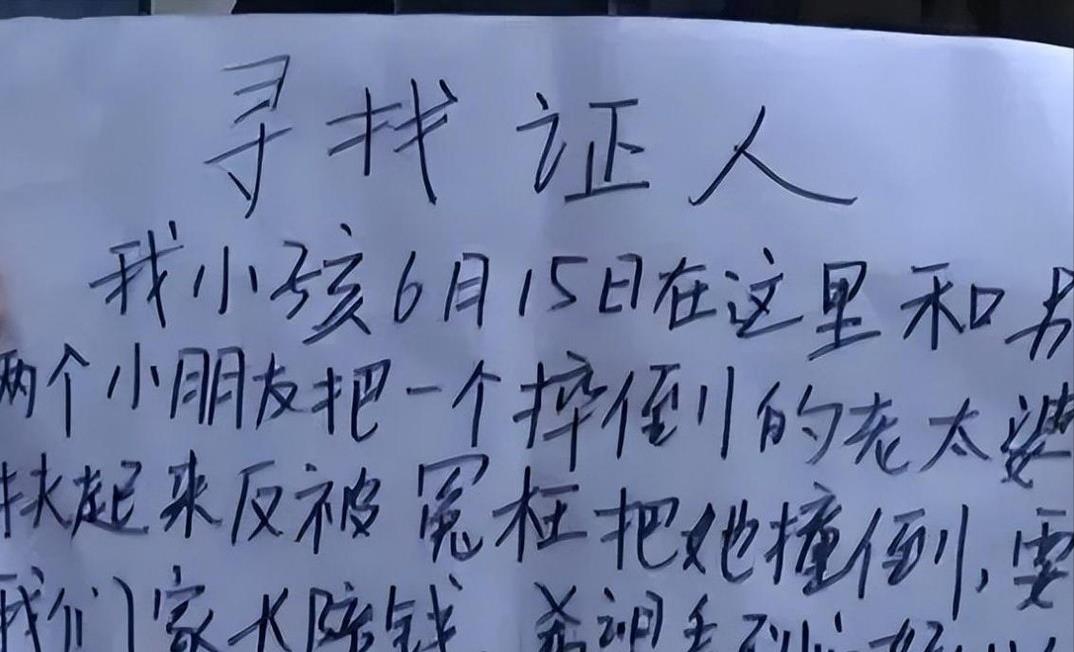 寻找证人
我小孩6月15日在这里和另
两个小朋友把一个摔倒的老太婆
扶起来反被冤枉把她撞倒,要
我们家大陪钱